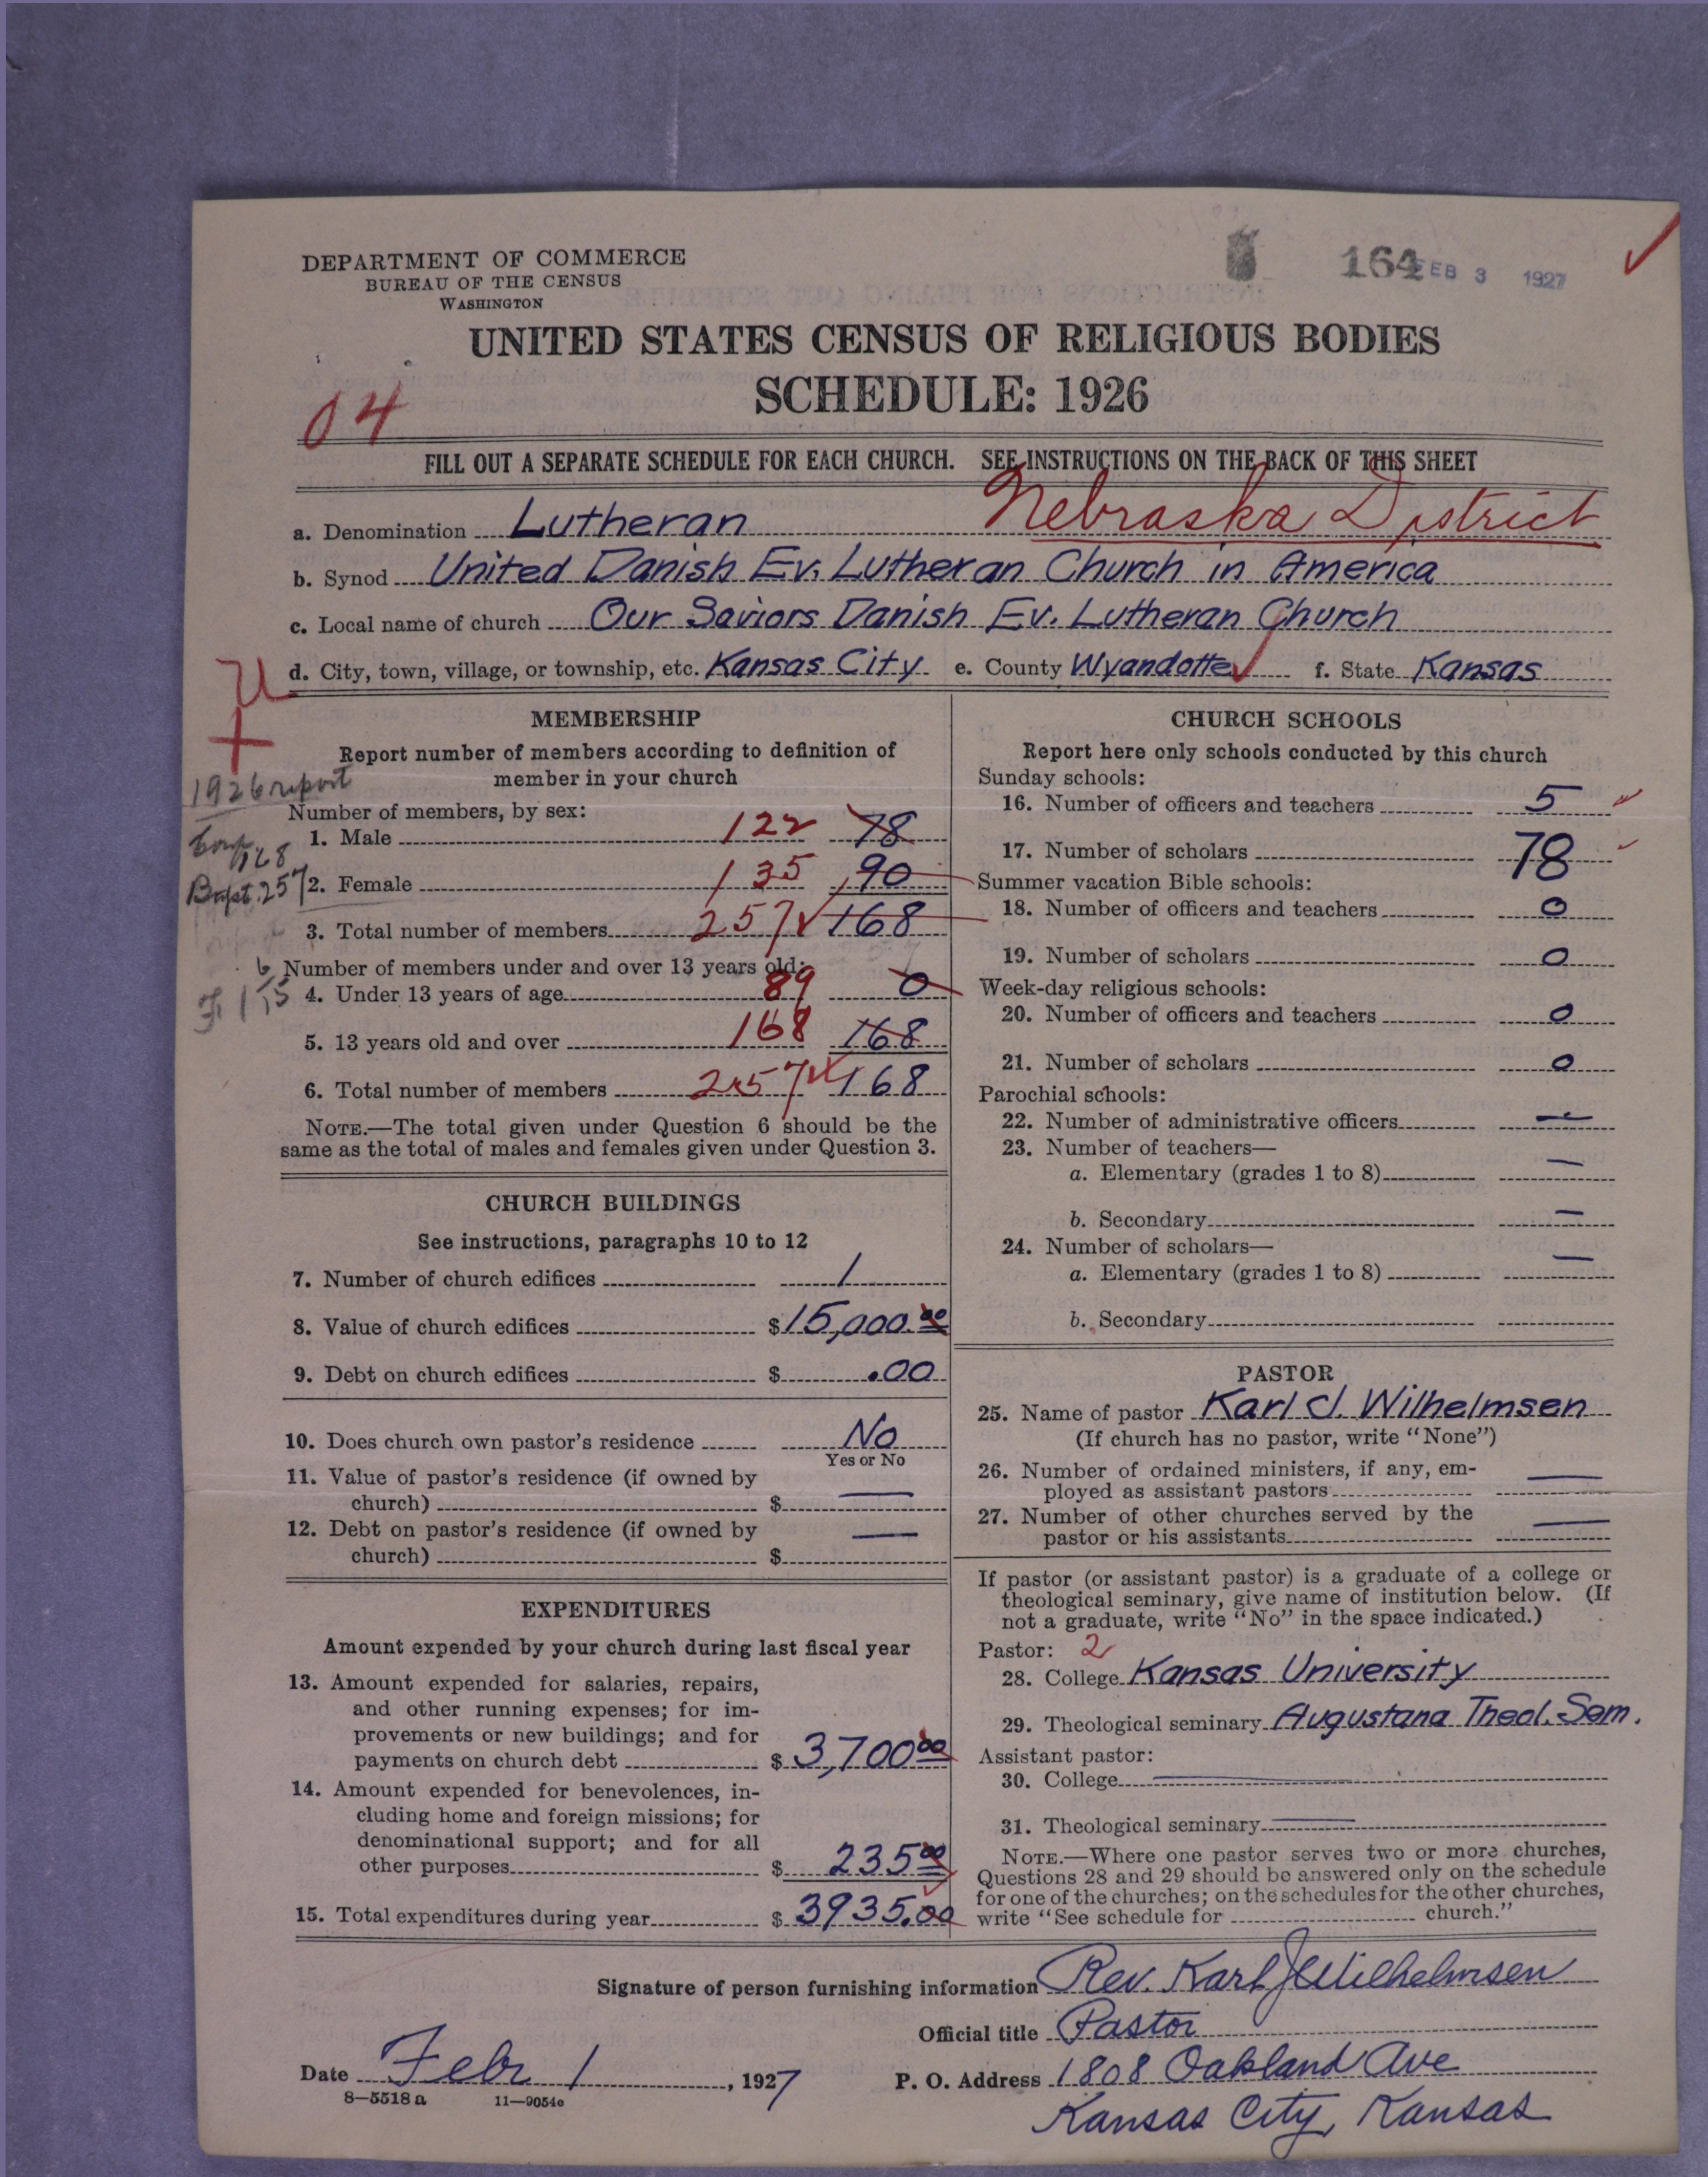 DEPARTMENT OF COMMERCE
BUREAU OF THE CENSUS
WASHINGTON
164 FEB 3 1927
UNITED STATES CENSUS OF RELIGIOUS BODIES
SCHEDULE: 1926
04
FILL OUT A SEPARATE SCHEDULE FOR EACH CHURCH. SEE INSTRUCTIONS ON THE BACK OF THIS SHEET
Nebraska District
a. Denomination Lutheran
b. Synod United Danish Ev. Lutheran Church in America
c. Local name of church Our Saviors Danish Ev. Lutheran Church
d. City, town, village, or township, etc. Kansas City e. County Wyandotte f. State Kansas
MEMBERSHIP
Report number of members according to definition of
member in your church
1926 report
Number of members, by sex:
1. Male 122 78
168
Bapt. 257
2. Female 135 90
3. Total number of members 257 168
Number of members under and over 13 years old:
4. Under 13 years of age 89 0
5. 13 years old and over 168 168
6. Total number of members 257 168
NOTE.—The total given under Question 6 should be the
same as the total of males and females given under Question 3.
CHURCH BUILDINGS
See instructions, paragraphs 10 to 12
7. Number of church edifices 1
8. Value of church edifices $15,000.00
9. Debt on church edifices $ .00
10. Does church own pastor's residence No
Yes or No
11. Value of pastor's residence (if owned by
church) $ —
12. Debt on pastor's residence (if owned by
church) $ —
EXPENDITURES
Amount expended by your church during last fiscal year
13. Amount expended for salaries, repairs,
and other running expenses; for im-
provements or new buildings; and for
payments on church debt $ 3,700 00
14. Amount expended for benevolences, in-
cluding home and foreign missions; for
denominational support; and for all
other purposes $ 235 00
15. Total expenditures during year $ 3935.00
CHURCH SCHOOLS
Report here only schools conducted by this church
Sunday schools:
16. Number of officers and teachers 5
17. Number of scholars 78
Summer vacation Bible schools:
18. Number of officers and teachers 0
19. Number of scholars 0
Week-day religious schools:
20. Number of officers and teachers 0
21. Number of scholars 0
Parochial schools:
22. Number of administrative officers —
23. Number of teachers—
a. Elementary (grades 1 to 8) —
b. Secondary —
24. Number of scholars—
a. Elementary (grades 1 to 8) —
b. Secondary
PASTOR
25. Name of pastor Karl J. Wilhelmsen
(If church has no pastor, write "None")
26. Number of ordained ministers, if any, em-
ployed as assistant pastors —
27. Number of other churches served by the
pastor or his assistants —
If pastor (or assistant pastor) is a graduate of a college or
theological seminary, give name of institution below. (If
not a graduate, write "No" in the space indicated.)
Pastor: 2
28. College Kansas University
29. Theological seminary Augustana Theol. Sem.
Assistant pastor:
30. College —
31. Theological seminary —
NOTE.—Where one pastor serves two or more churches,
Questions 28 and 29 should be answered only on the schedule
for one of the churches; on the schedules for the other churches,
write "See schedule for church."
Signature of person furnishing information Rev. Karl J Wilhelmsen
Official title Pastor
Date Febr 1, 1927
P. O. Address 1808 Oakland Ave
Kansas City, Kansas
8—5518 a 11—9054c